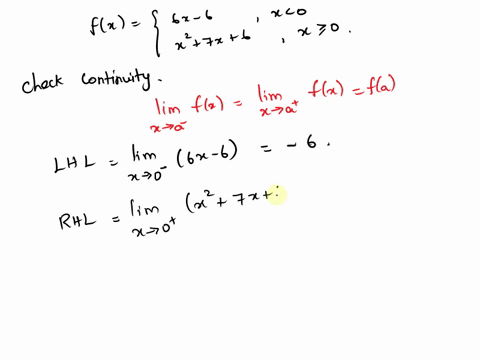 f(x) = { 6x-6 , x<0
x²+7x+6 , x≥0.
check continuity.
lim x→a⁻ f(x) = lim x→a⁺ f(x) = f(a)
LHL = lim x→0⁻ (6x-6) = -6.
RHL = lim x→0⁺ (x²+7x+